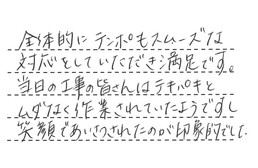 全体的にテンポもスムーズな
対応をしていただき満足です。
当日の工事の皆さんはテキパキと
ムダなく作業されていたようですし
笑顔であいさつされたのが印象的でした.